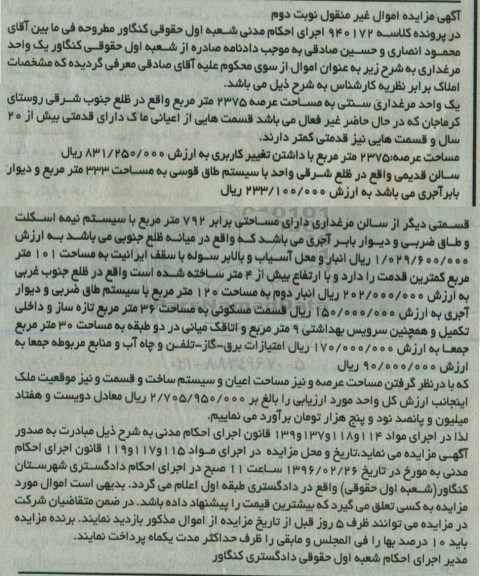 آگهی مزایده اموال غیر منقول نوبت دوم
در پرونده کلاسه ۹۴۰۱۷۲ اجرای احکام مدنی شعبه اول حقوقی کنگاور مطروحه فی ما بین آقای
محمود انصاری و حسین صادقی به موجب دادنامه صادره از شعبه اول حقوقی کنگاور یک واحد
مرغداری به شرح زیر به عنوان اموال از سوی محکوم علیه آقای صادقی معرفی گردیده که مشخصات
املاک برابر نظریه کارشناس به شرح ذیل می باشد.
یک واحد مرغداری سنتی به مساحت عرصه ۲۳۷۵ متر مربع واقع در ظلع جنوب شرقی روستای
کرماجان که در حال حاضر غیر فعال می باشد قسمت هایی از اعیانی ما ک دارای قدمتی بیش از ۲۰
سال و قسمت هایی نیز قدمتی کمتر دارند.
مساحت عرصه:۲۳۷۵ متر مربع با داشتن تغییر کاربری به ارزش ۸۳۱/۲۵۰/۰۰۰ ریال
سالن قدیمی واقع در ظلع شرقی واحد با سیستم طاق قوسی به مساحت ۳۳۳ متر مربع و دیوار
بابرآجری می باشد به ارزش ۲۳۳/۱۰۰/۰۰۰ ریال
قسمتی دیگر از سالن مرغداری دارای مساحتی برابر ۷۹۲ متر مربع با سیستم نیمه اسکلت
و طاق ضربی و دیوار بابر آجری می باشد که واقع در میانه ظلع جنوبی می باشد به ارزش
۱/۰۲۹/۶۰۰/۰۰۰ ریال انبار و محل آسیاب و بالابر سوله با سقف ایرانیت به مساحت ۱۰۱ متر
مربع کمترین قدمت را دارد و با ارتفاع بیش از ۴ متر ساخته شده است واقع در ظلع جنوب غربی
به ارزش ۲۰۲/۰۰۰/۰۰۰ ریال انبار دوم به مساحت ۱۲۰ متر مربع با سیستم طاق ضربی و دیوار
آجری به ارزش ۱۵۰/۰۰۰/۰۰۰ ریال قسمت مسکونی به مساحت ۳۶ متر مربع تازه ساز و داخلی
تکمیل و همچنین سرویس بهداشتی ۹ متر مربع و اتاقک میانی در دو طبقه به مساحت ۳۰ متر مربع
جمعا به ارزش ۱۷۰/۰۰۰/۰۰۰ ریال امتیازات برق-گاز-تلفن و چاه آب و منابع مربوطه جمعا به
ارزش ۹۰/۰۰۰/۰۰۰ ریال
که با درنظر گرفتن مساحت عرصه و نیز مساحت اعیان و سیستم ساخت و قسمت و نیز موقعیت ملک
اینجانب ارزش کل واحد مورد ارزیابی را بالغ بر ۲/۷۰۵/۹۵۰/۰۰۰ ریال معادل دویست و هفتاد
میلیون و پانصد نود و پنج هزار تومان برآورد می نماییم.
لذا در اجرای مواد ۱۱۴و۱۱۸و۱۳۷و۱۳۹ قانون اجرای احکام مدنی به شرح ذیل مبادرت به صدور
آگهی مزایده می نماید،تاریخ و محل مزایده در اجرای مواد ۱۱۵و۱۱۷و۱۱۹ قانون اجرای احکام
مدنی به مورخ در تاریخ ۱۳۹۶/۰۲/۲۶ ساعت ۱۱ صبح در اجرای احکام دادگستری شهرستان
کنگاور(شعبه اول حقوقی) واقع در دادگستری طبقه اول اعلام می گردد. بدیهی است اموال مورد
مزایده به کسی تعلق می گیرد که بیشترین قیمت را پیشنهاد داده باشد. در ضمن متقاضیان شرکت
در مزایده می توانند ظرف ۵ روز قبل از تاریخ مزایده از اموال مذکور بازدید نمایند. برنده مزایده
باید ۱۰ درصد بها را فی المجلس و مابقی را ظرف حداکثر مدت یکماه پرداخت نمایند.
مدیر اجرای احکام شعبه اول حقوقی دادگستری کنگاور